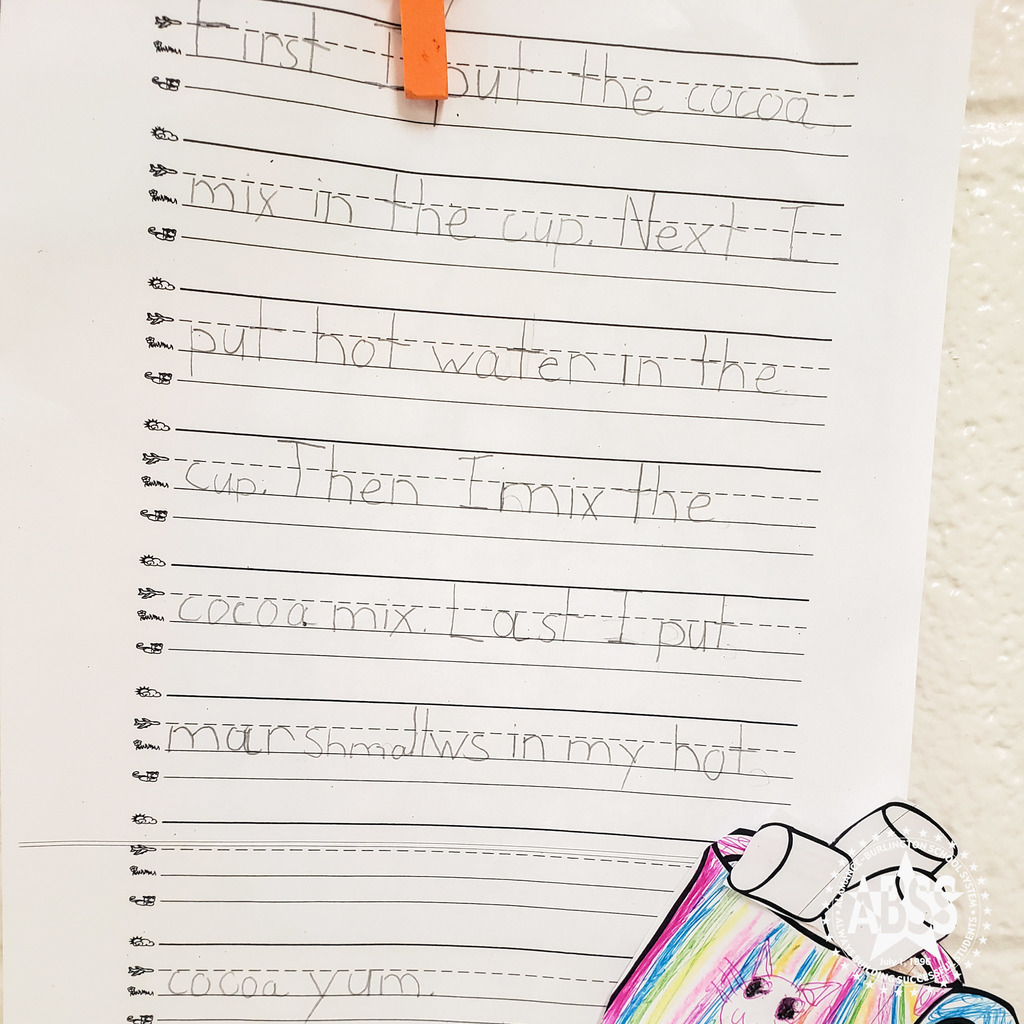 First I put the cocoa
mix in the cup. Next I
put hot water in the
cup. Then I mix the
cocoa mix. Last I put
marshmallws in my hot
cocoa yum.
ALAMANCE-BURLINGTON SCHOOL SYSTEM
ABSS
July 1, 1996
ALWAYS BUILDING SUCCESSFUL STUDENTS